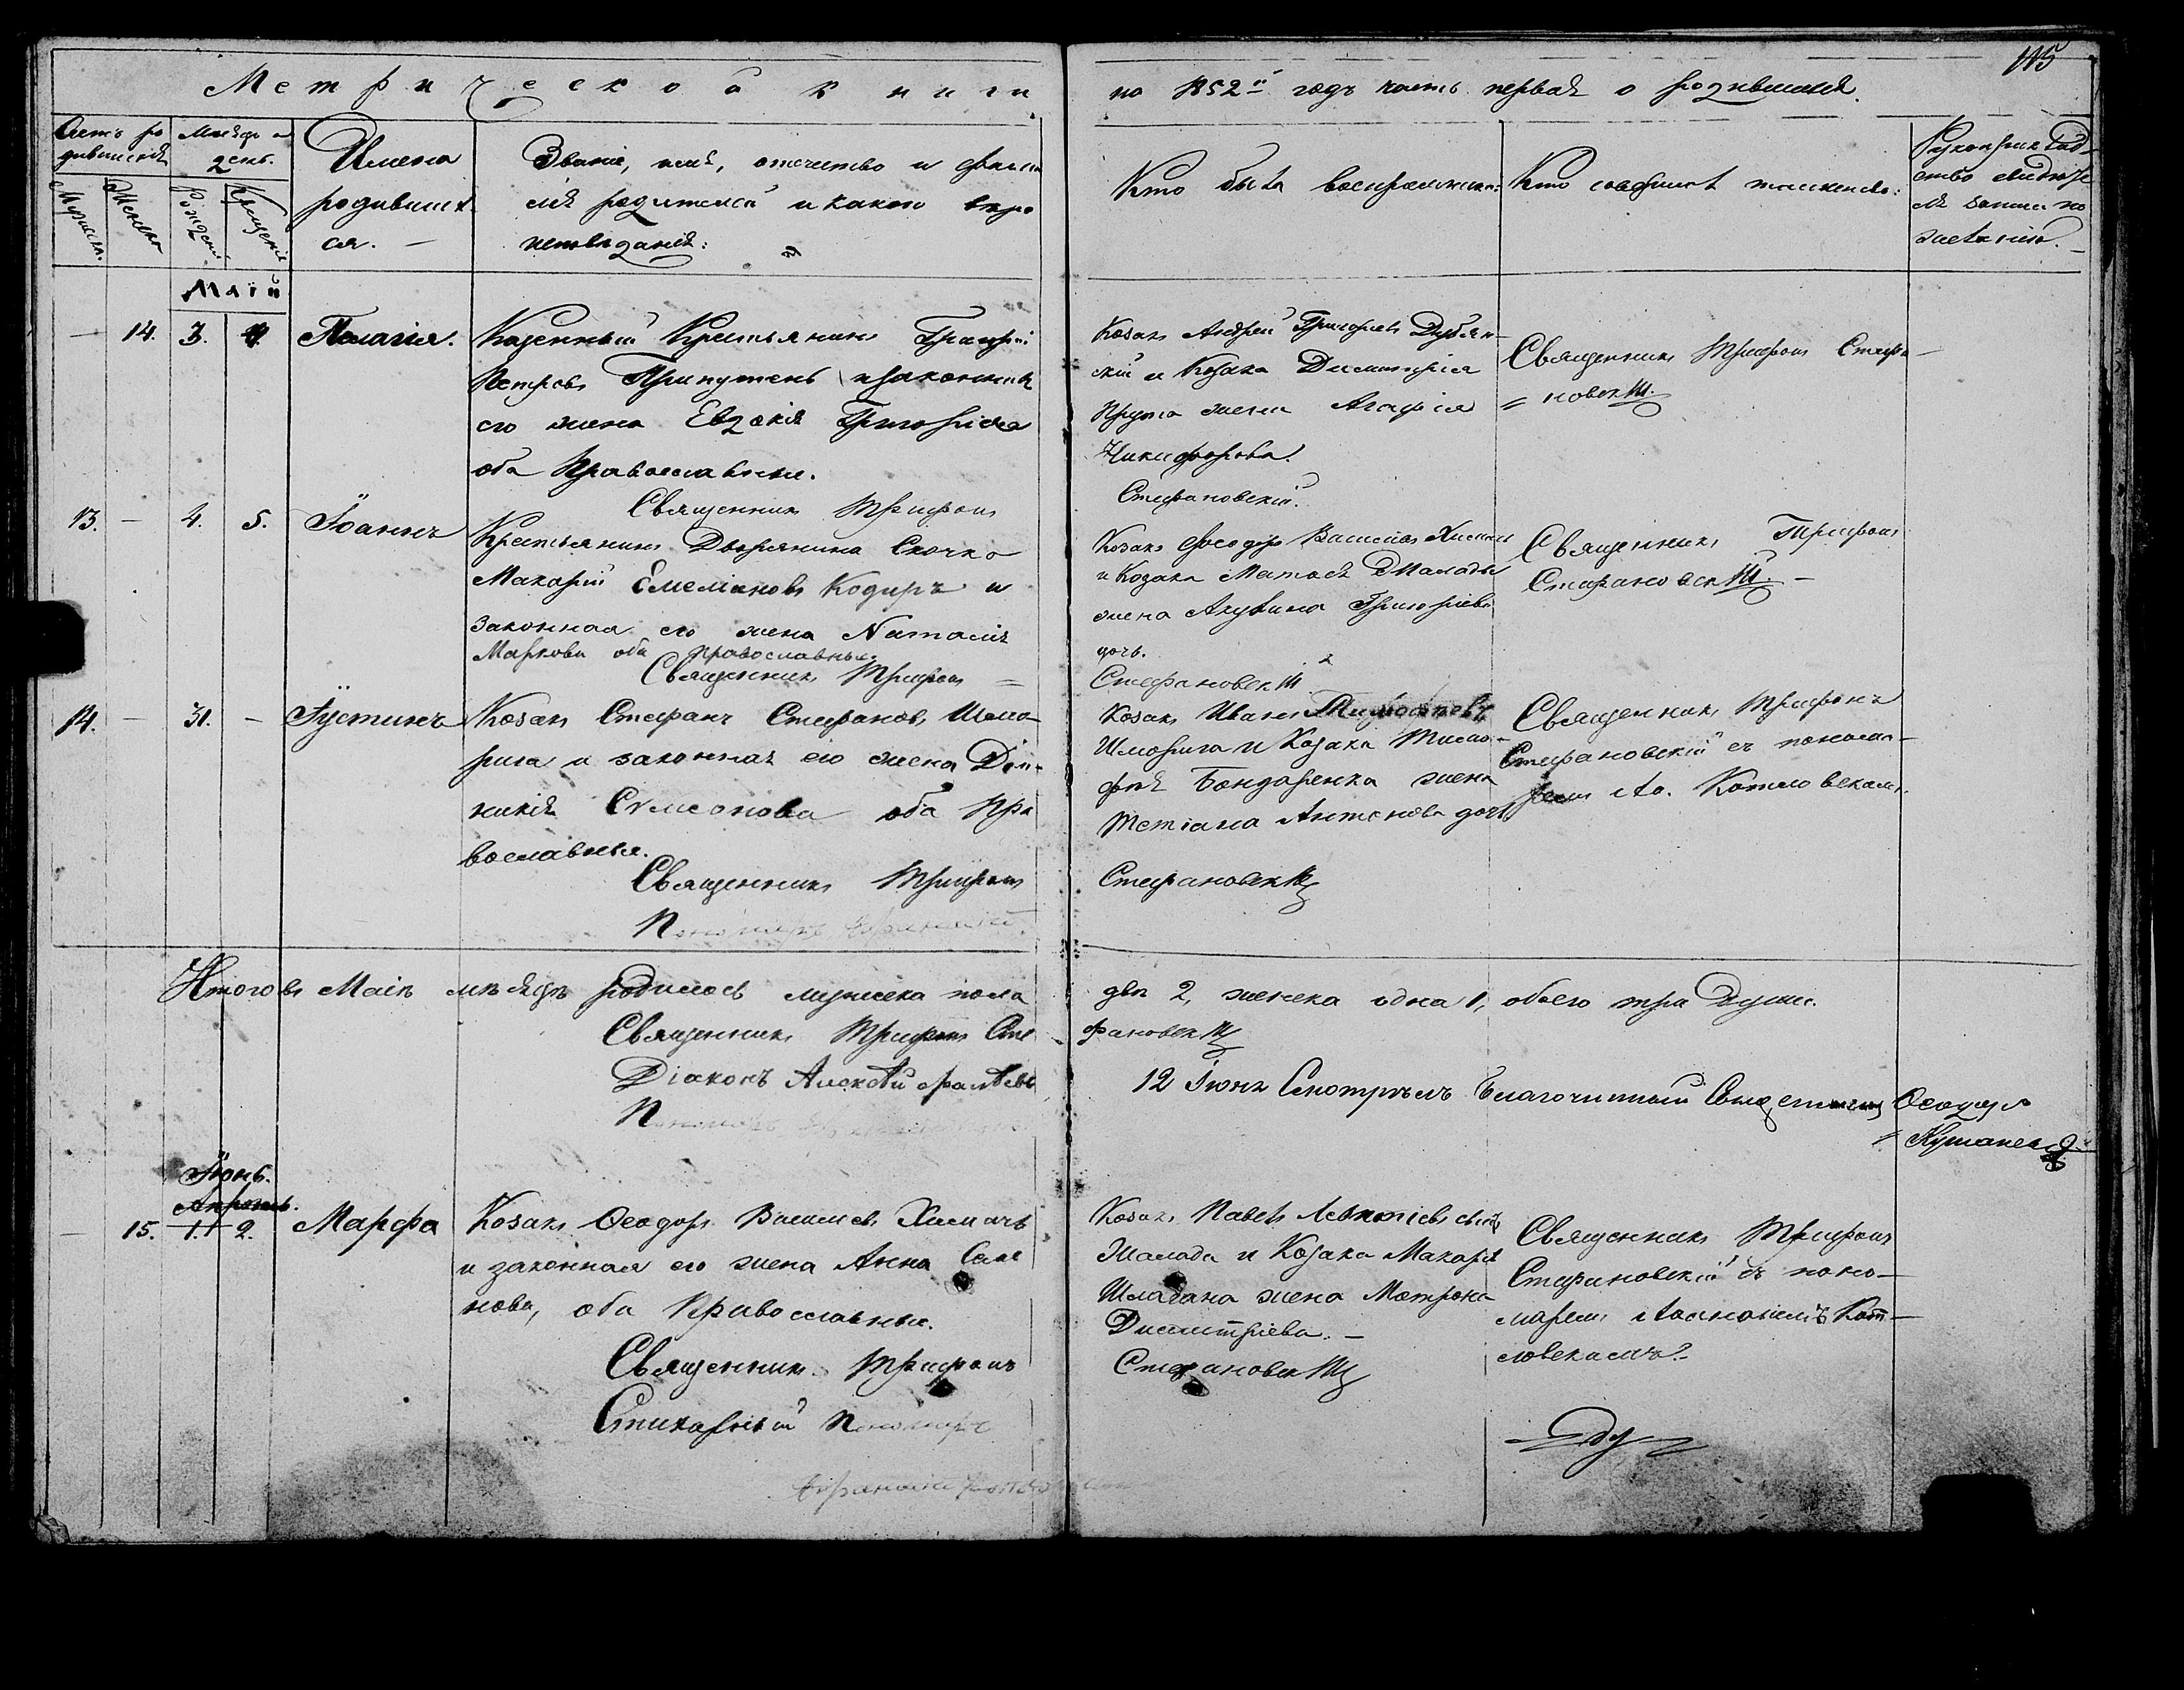 115
Метрической книги
на 1852й годъ часть первая о родившихся.
Счетъ ро
дившихся
Мужеска.
Женска
Мѣсяцъ и
день.
Рожденія
Крещенія
Имена
родивших
ся. —
Званіе, имя, отечество и фами
лія родителей и какого вѣро
исповѣданія:
Кто были воспріемники:
Кто совершалъ таинство:
Рукоприклад
ство свидѣте
лей записи по
желанію. —
Маій
— 14. 3. 4. Пелагія.
Казенный Крестьянинъ Григорій
Петровъ Припутень и законная
его жена Евдокія Григоріева
оба Православные.
Священникъ Трифонъ
Козакъ Андрей Григорьевъ Дубян-
скій и Козака Димитрія
Крута жена Агафія
Никифорова.
Стефановскій.
Священникъ Трифонъ Стефа—
= новскій.
13. — 4. 5. Іоаннъ
Крестьянинъ Дворянина Скочко
Макарій Емеліановъ Кодиръ и
законная его жена Наталія
Маркова оба православные.
Священникъ Трифонъ =
Козакъ Феодоръ Васильевъ
и Козака Матвѣя Шалады
жена Акулина Григоріева
дочь.
Стефановскій
Священникъ Трифонъ
Стефановскій. —
14. — 31. — Іустинъ
Козакъ Стефанъ Стефановъ Шмо-
рига и законная его жена Дом-
никія Сѵмеонова оба Пра
вославные.
Священникъ Трифонъ
Пономарь
Козакъ Иванъ
Шморига и Козака Тимо-
фея Бондаренка жена
Тетіана Антонова дочь
Стефановскій
Священникъ Трифонъ
Стефановскій съ понома—
ремъ Котлевскимъ.
Итого въ Маіѣ мѣсяцѣ родилось мужеска пола
два 2, женска одна 1, обоего три Души.
Священникъ Трифонъ Сте
фановскій
Діаконъ Алексѣй
Пономарь
12 Іюня Смотрѣлъ Благочинный Священникъ Ѳеодоръ
Іюнь.
Апрель.
— 15. 1. 2. Марфа
Козакъ Ѳеодоръ Васильевъ Химичъ
и законная его жена Анна Симе
нова, оба Православные.
Священникъ Трифонъ
Стихарный Пономарь
Козакъ Павелъ Леонтіевъ сынъ
Шалада и Козака Макарія
Шлагана жена Матрона
Димитріева. —
Стефановскій
Священникъ Трифонъ
Стефановскій съ поно—
маремъ Кот—
левскимъ. —